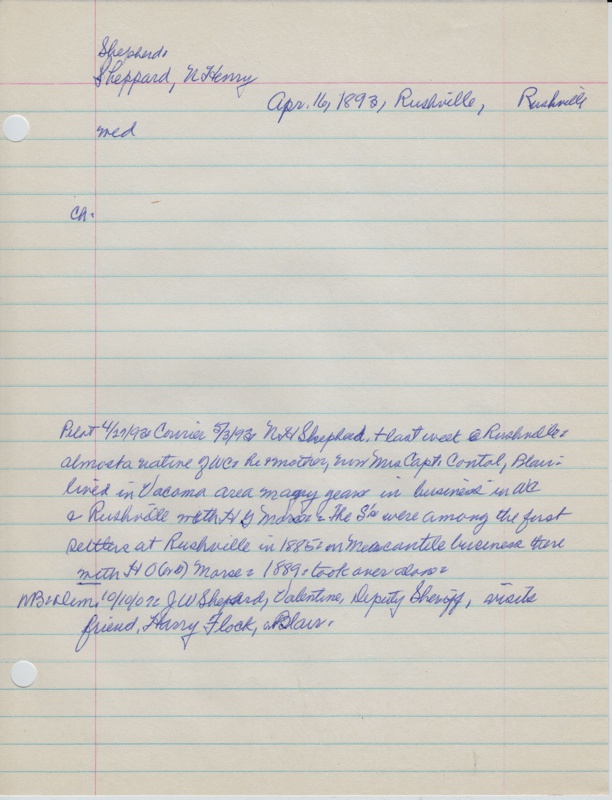 Shepherd:
Sheppard, N Henry
Apr. 16, 1893, Rushville, Rushville
med
Ch.
Pilot 4/27/93: Courier 5/3/93: N.H Shepherd, + last week @ Rushville:
almost a native of WC: he + mother, now Mrs Capt: Contal, Blair:
lived in Vacoma area many years in business in
& Rushville with H Morse: The S's were among the first
settlers at Rushville in 1885: in Mercantile business there
with H O( ) Morse: 1889: took over alone:
10/10/02 J W Shepard, Valentine, Deputy Sheriff, visits
friend, Harry Flock, Blair.